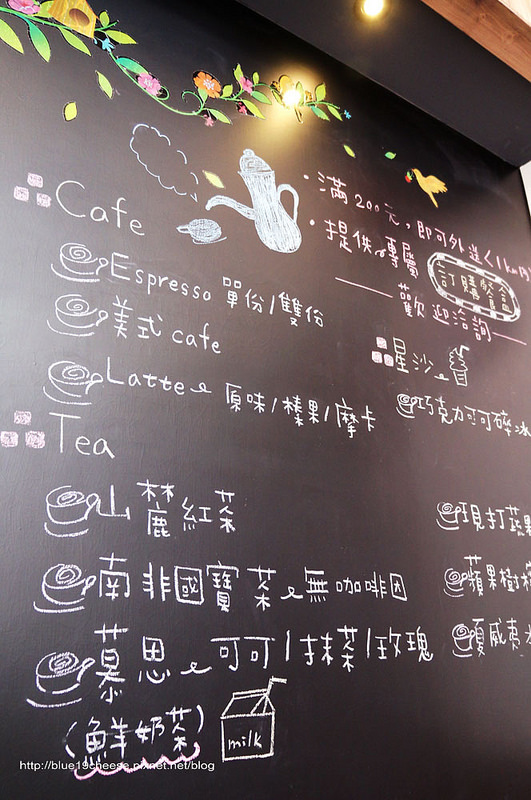 ・滿200元，即可外送<1km內
・提供專屬
訂購餐盒
歡迎洽詢
Cafe
Espresso 單份/雙份
美式 cafe
Latte 原味/榛果/摩卡
星沙
巧克力可可碎冰
Tea
山麓紅茶
南非國寶茶 無咖啡因
慕思 可可/抹茶/玫瑰
(鮮奶茶)
milk
現打蔬果
蘋果樹
夏威夷
http://blue19cheese.pixnet.net/blog